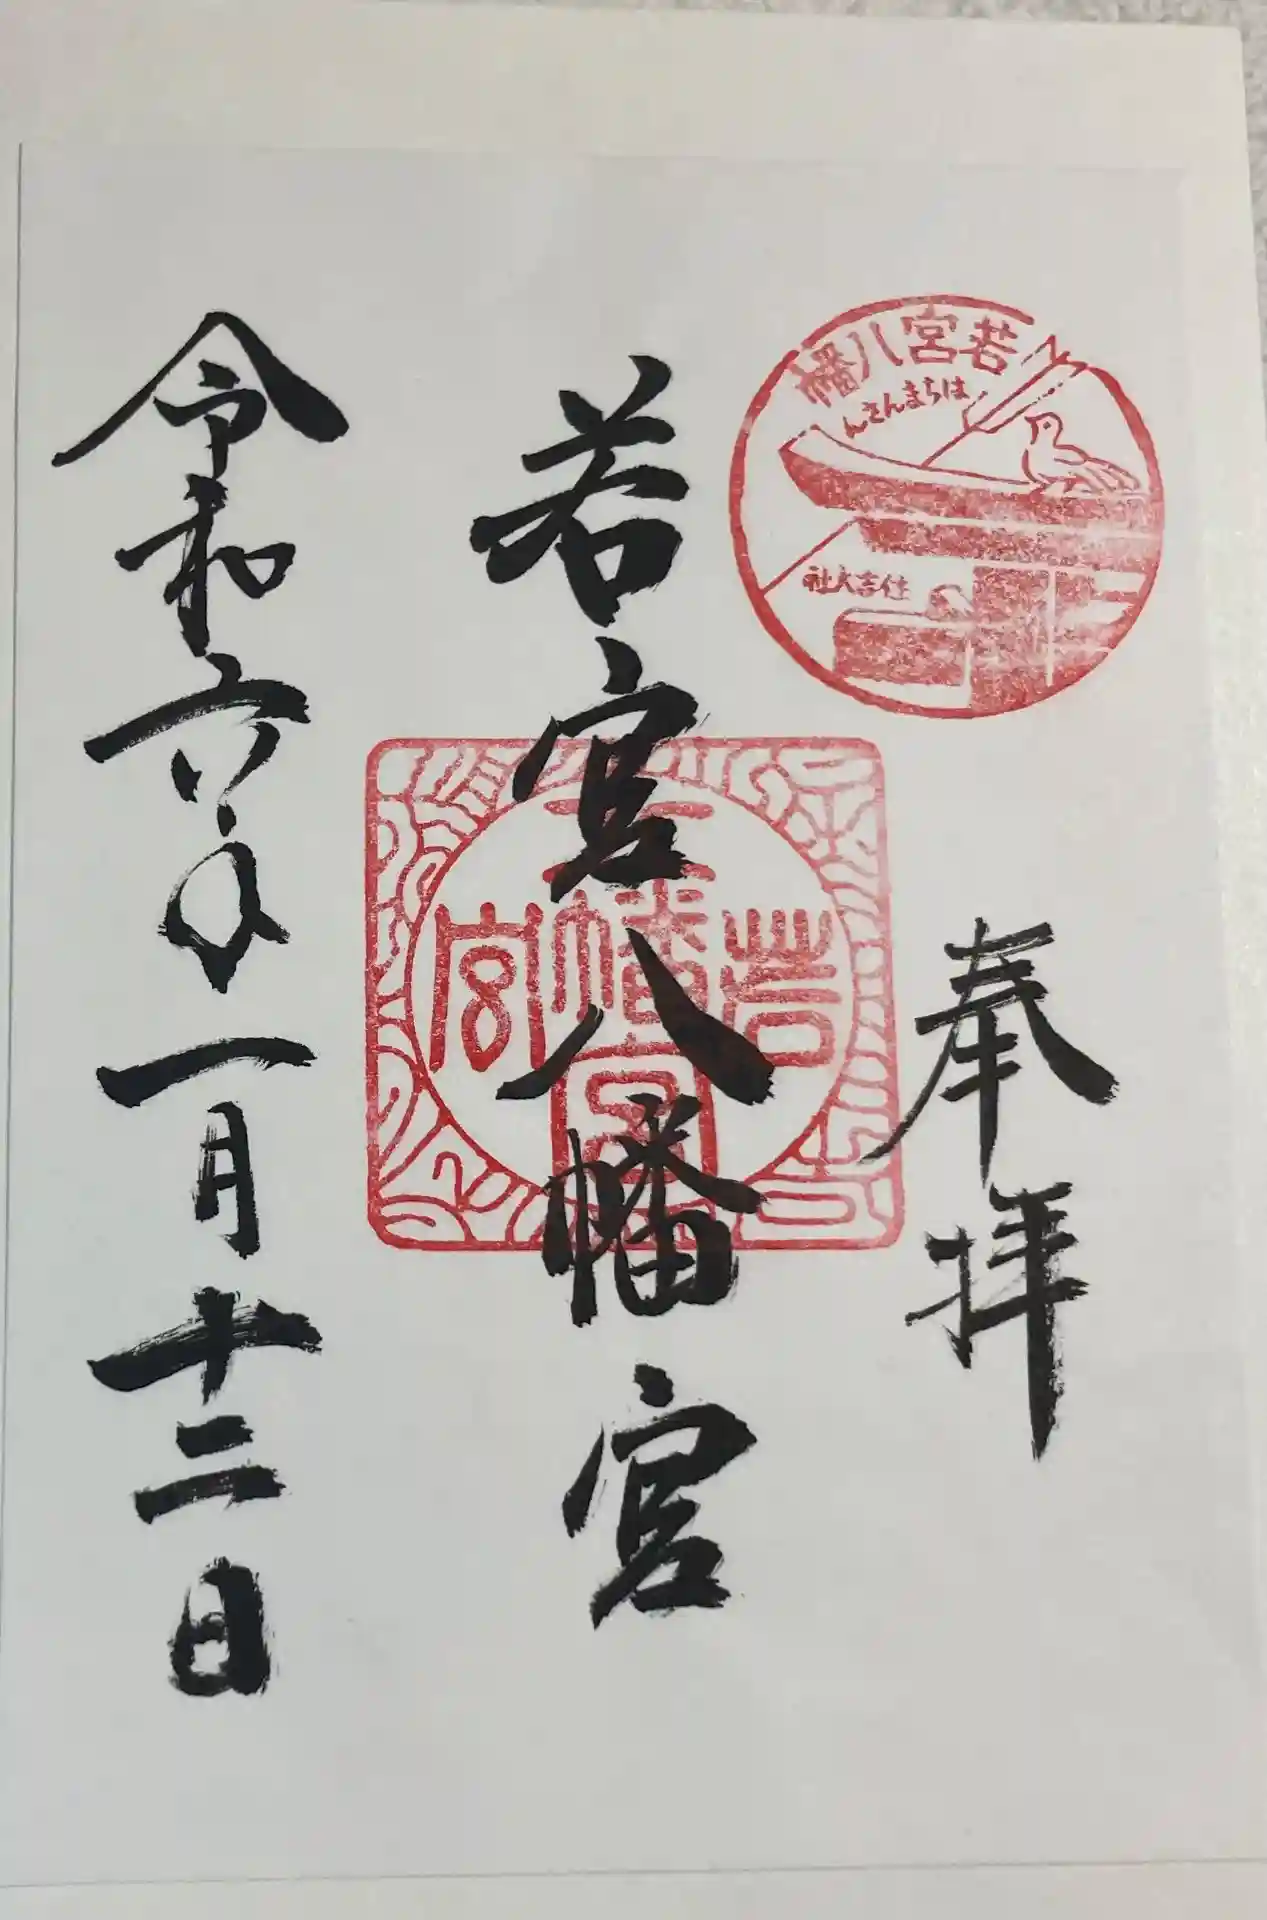 若宮八幡
はちまんさん
住吉大社
奉拝
若宮八幡宮
若宮
八幡宮
令和六年一月十二日